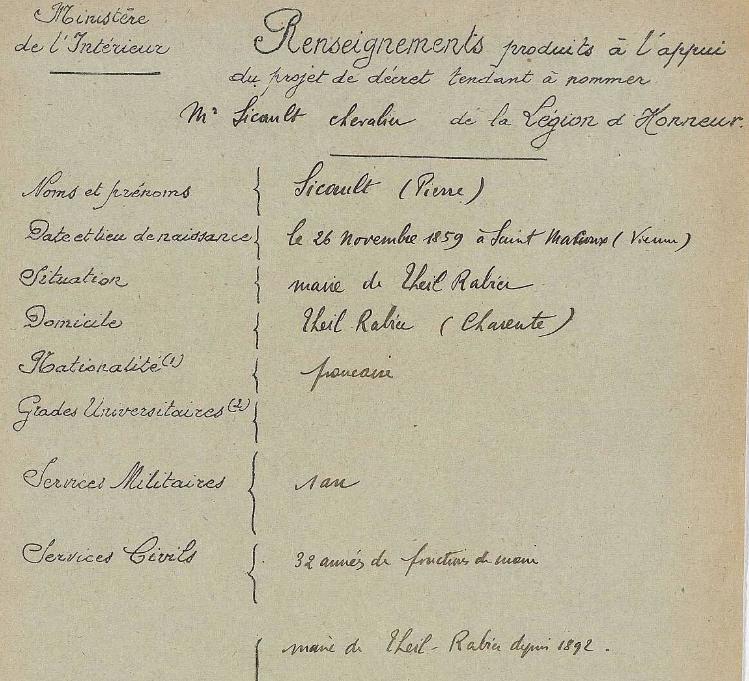 Ministère
de l'Intérieur
Renseignements produits à l'appui
du projet de décret tendant à nommer
Mr Sicault chevalier de la Légion d'Honneur.
Noms et prénoms { Sicault (Pierre)
Date et lieu de naissance { le 26 Novembre 1859 à Saint (Vienne)
Situation { maire de Theil Rabier
Domicile { Theil Rabier (Charente)
Nationalité (1) { française
Grades Universitaires (2) {
Services Militaires { 1 an
Services Civils { 32 années de fonctions de maire
{ maire de Theil-Rabier depuis 1892.